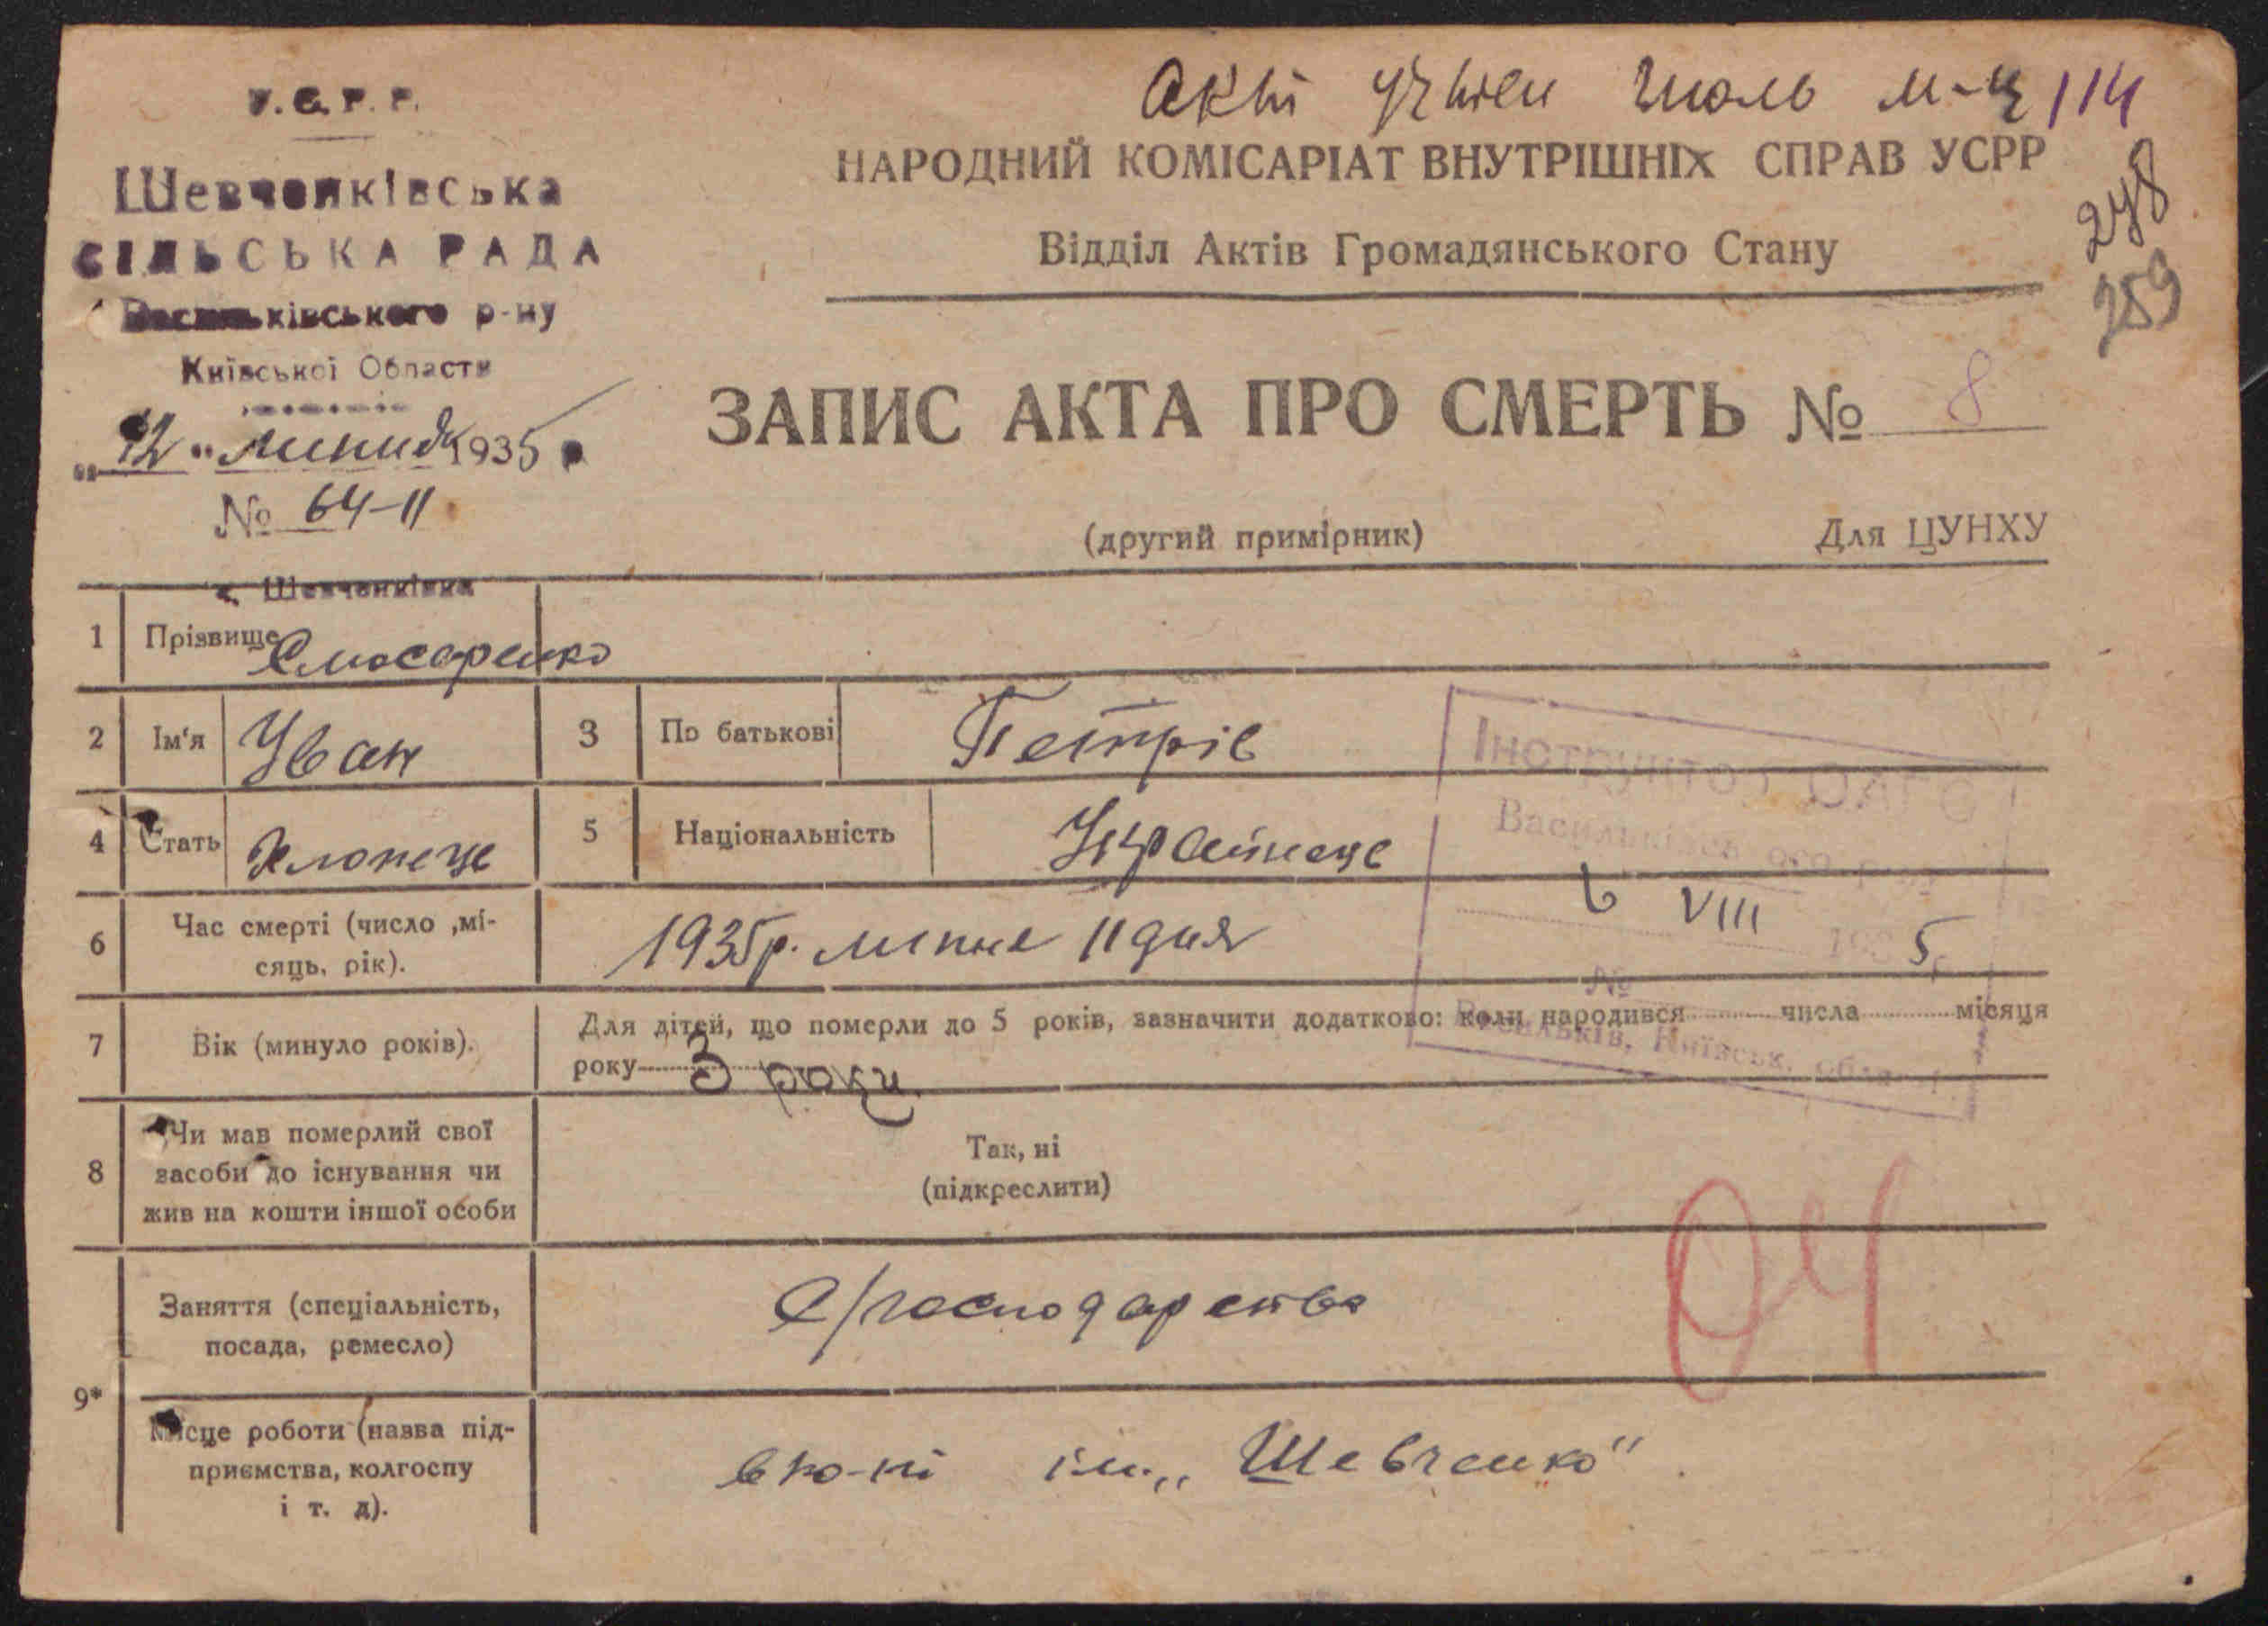 Акт учтен Июль м-ц 114
У.С.Р.Р.
Шевченківська
СІЛЬСЬКА РАДА
Васильківського р-ну
Київської Области
"12" липня 1935 р
№ 64-11
с. Шевченківка
НАРОДНИЙ КОМІСАРІАТ ВНУТРІШНІХ СПРАВ УСРР
248
Відділ Актів Громадянського Стану
259
ЗАПИС АКТА ПРО СМЕРТЬ № 8
(другий примірник) Для ЦУНХУ
1 Прізвище Слюсаренко
2 Ім'я Іван 3 По батькові Петрів
4 Стать Хлопець 5 Національність Українець
Інструктор ВАГС
Васильківського р-ну
6 VIII 1935
№
Васильків, Київськ. області
6 Час смерті (число ,мі-
сяць, рік). 1935р. липня 11 дня
7 Вік (минуло років). Для дітей, що померли до 5 років, зазначити додатково: коли народився числа місяця
року 3 роки
8 Чи мав померлий свої
засоби до існування чи
жив на кошти іншої особи
Так, ні
(підкреслити)
9*
Заняття (спеціальність,
посада, ремесло)
С/господарство
04
Місце роботи (назва під-
приємства, колгоспу
і т. д).
в ко-пі ім. "Шевченко"